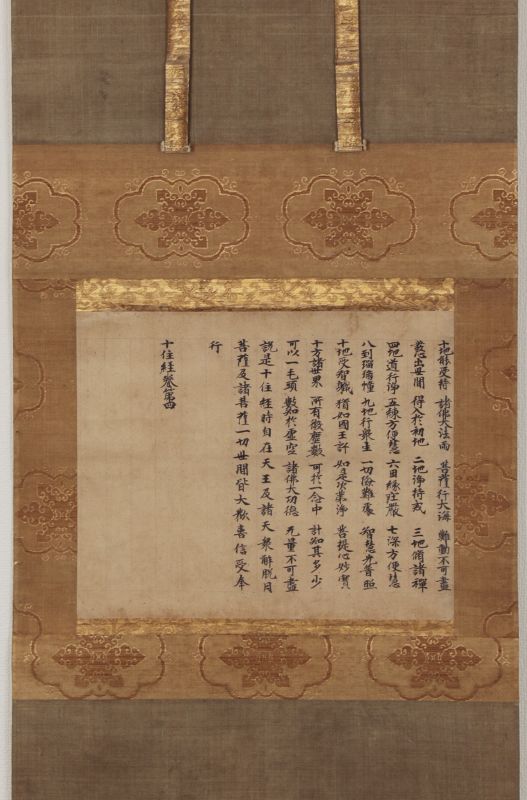 十地能受持 諸佛大法雨 菩薩行大海 難動不可盡
發心出世間 得入於初地 二地淨持戒 三地脩諸禪
四地道行淨 五練方便慧 六因緣莊嚴 七深方便慧
八到瑠璃幢 九地行衆生 一切嶮難處 智慧光普照
十地受智職 猶如國王許 如是次第淨 菩提心妙寶
十方諸世界 所有微塵數 可於一念中 計知其多少
可以一毛頭 數知於虛空 諸佛大功德 无量不可盡
說是十住經時自在天王及諸天衆解脫月
菩薩及諸菩薩一切世間皆大歡喜信受奉
行
十住経巻第四